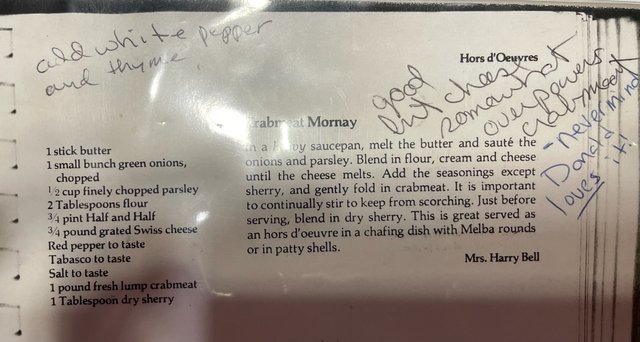 add white pepper
and thyme
Hors d'Oeuvres
good
but cheese
somewhat
overpowers
crabmeat
- nevermind
Donald
loves it!
Crabmeat Mornay
1 stick butter
1 small bunch green onions,
chopped
1/2 cup finely chopped parsley
2 Tablespoons flour
3/4 pint Half and Half
3/4 pound grated Swiss cheese
Red pepper to taste
Tabasco to taste
Salt to taste
1 pound fresh lump crabmeat
1 Tablespoon dry sherry
In a heavy saucepan, melt the butter and sauté the
onions and parsley. Blend in flour, cream and cheese
until the cheese melts. Add the seasonings except
sherry, and gently fold in crabmeat. It is important
to continually stir to keep from scorching. Just before
serving, blend in dry sherry. This is great served as
an hors d'oeuvre in a chafing dish with Melba rounds
or in patty shells.
Mrs. Harry Bell